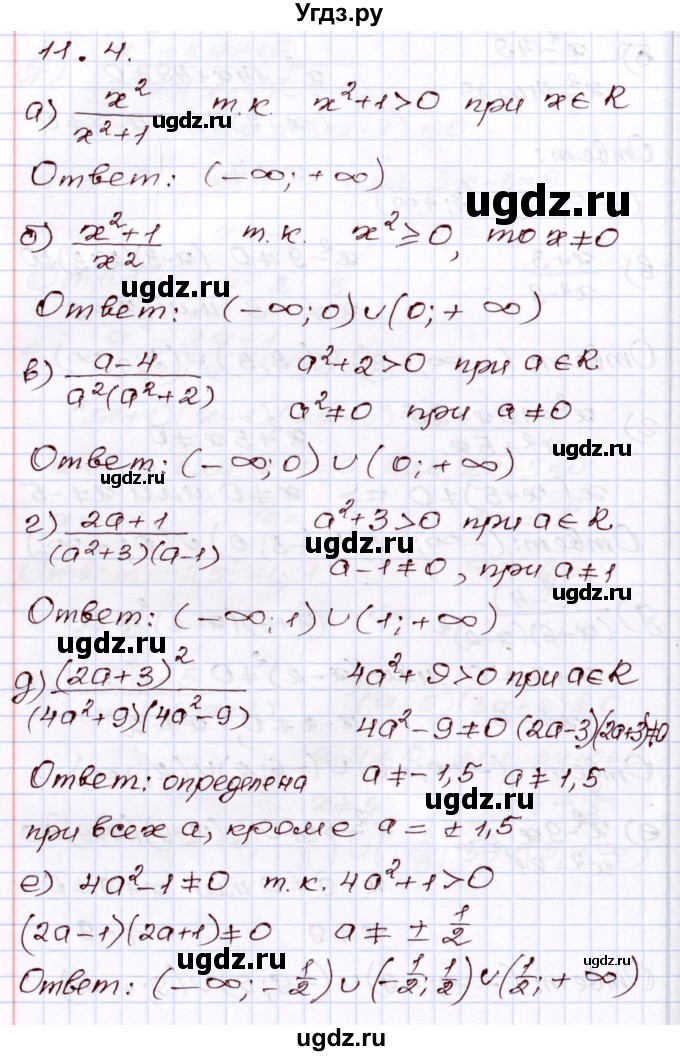 Угдз.ру
11.4.
а) x²/(x²+1) т.к. x²+1>0 при x∈R
udgz.ru
Ответ: (-∞;+∞)
ugdz.ru
б) (x²+1)/x2 т.к. x²≥0, то x≠0
ugdz.ru
Ответ: (-∞;0)∪(0;+∞)
в) (a-4)/(a²(a²+2)) a²+2>0 при a∈R
ugdz.ru
a²≠0 при a≠0
Ответ: (-∞;0)∪(0;+∞)
ugdz.ru
г) (2a+1)/((a²+3)(a-1)) a²+3>0 при a∈R
ugdz.ru
a-1≠0, при a≠1
Ответ: (-∞;1)∪(1;+∞)
ugdz.ru
д) (2a+3)²/((4a²+9)(4a²-9)) 4a²+9>0 при a∈R
4a²-9≠0 (2a-3)(2a+3)≠0
Ответ: определена a≠-1,5 a≠1,5
ugdz.ru
при всех a, кроме a=±1,5
е) 4a²-1≠0 т.к. 4a²+1>0
(2a-1)(2a+1)≠0 a≠±1/2
ugdz.ru
ugdz.ru
Ответ: (-∞;-1/2)∪(-1/2;1/2)∪(1/2;+∞)
ugdz.ru